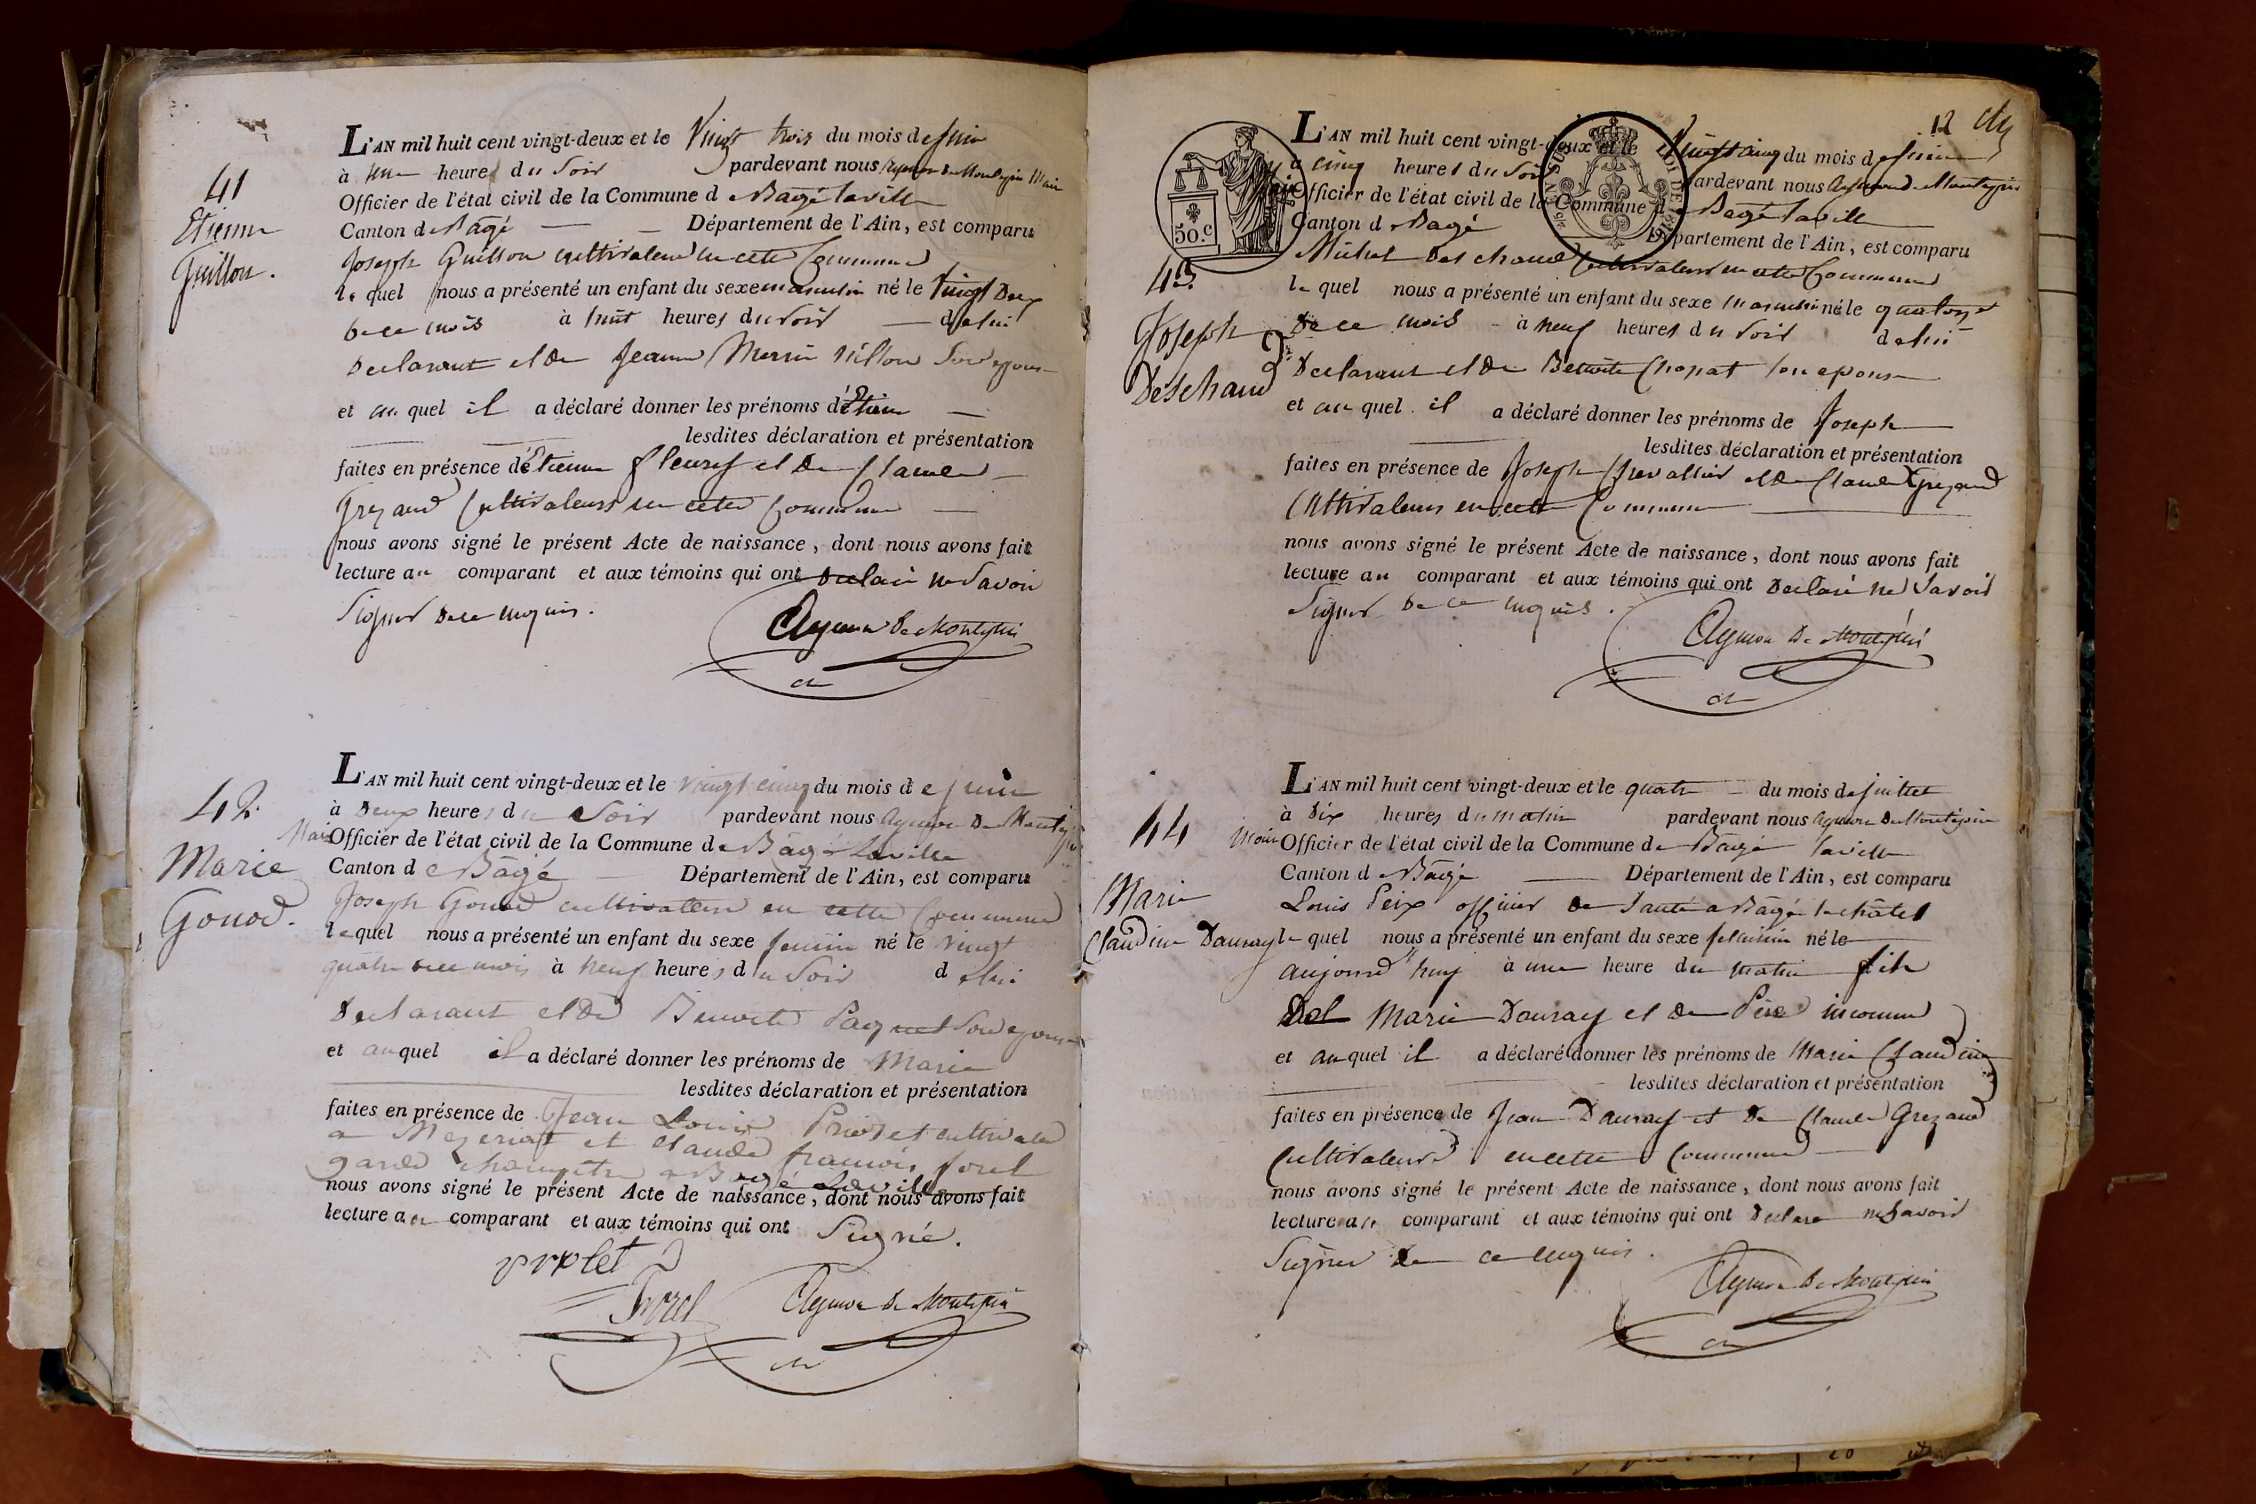 41
Etienne
Guillon.
L'AN mil huit cent vingt-deux et le Vingt trois du mois de juin
à une heures du Soir pardevant nous Aymon De Montepin Maire
Officier de l'état civil de la Commune de Bâgé laville
Canton de Bâgé Département de l'Ain, est comparu
Joseph Guillon cultivateur en cette Commune
le quel nous a présenté un enfant du sexe masculin né le Vingt Deux
De ce mois à huit heures du soir de lui
Declarant et de Jeanne Marie Son epouse
et au quel il a déclaré donner les prénoms d'Etienne
lesdites déclaration et présentation
faites en présence d'Etienne fleury et De Claude
Grezaud Cultivateurs en cette Commune
nous avons signé le présent Acte de naissance, dont nous avons fait
lecture au comparant et aux témoins qui ont Declaré ne Savoir
Signer De ce enquis.
Aymon De Montepin
42
Marie
Gonod.
L'AN mil huit cent vingt-deux et le vingt cinq du mois de juin
à Deux heures du Soir pardevant nous Aymon De Montepin
Maire Officier de l'état civil de la Commune de Bâgé Laville
Canton de Bâgé Département de l'Ain, est comparu
Joseph Gonod cultivateur en cette Commune
le quel nous a présenté un enfant du sexe feminin né le vingt
quatre de ce mois à neuf heures du Soir de lui
Declarant et De Benoite Paquet Son epouse
et au quel il a déclaré donner les prénoms de Marie
lesdites déclaration et présentation
faites en présence de Jean Louis cultivateur
a Mezeriat et Claude françois forel
garde champetre a Bagé Laville
nous avons signé le présent Acte de naissance, dont nous avons fait
lecture au comparant et aux témoins qui ont Signé.
Forel Aymon De Montepin
12
50.c
43
Joseph
Deschaud
L'AN mil huit cent vingt-deux et le Vingt cinq du mois de juin
à cinq heures du Soir pardevant nous Aymon De Montepin
Maire Officier de l'état civil de la Commune de Bagé laville
Canton de Bagé Département de l'Ain, est comparu
Michel Deschaud Cultivateur en cette Commune
le quel nous a présenté un enfant du sexe masculin né le quatorze
De ce mois à neuf heures du Soir de lui
Declarant et De Benoite Chanat son epouse
et au quel il a déclaré donner les prénoms de Joseph
lesdites déclaration et présentation
faites en présence de Joseph Chevallier et De Claude Grezaud
Cultivateurs en cette Commune
nous avons signé le présent Acte de naissance, dont nous avons fait
lecture au comparant et aux témoins qui ont Declaré ne Savoir
Signer De ce enquis.
Aymon De Montepin
44
Marie
Claudine Dauray
L'AN mil huit cent vingt-deux et le quatre du mois de juillet
à Dix heures du matin pardevant nous Aymon De Montepin
Maire Officier de l'état civil de la Commune de Bâgé laville
Canton de Bâgé Département de l'Ain, est comparu
Louis Peix officier de Santé a Bâgé le châtel
le quel nous a présenté un enfant du sexe feminin né le
aujourd'huy à une heure du matin fille
De Marie Dauray et de Père inconnu
et au quel il a déclaré donner les prénoms de Marie Claudine
lesdites déclaration et présentation
faites en présence de Jean Dauray et De Claude Grezaud
Cultivateurs en cette Commune
nous avons signé le présent Acte de naissance, dont nous avons fait
lecture au comparant et aux témoins qui ont Declaré ne Savoir
Signer De ce enquis.
Aymon De Montepin